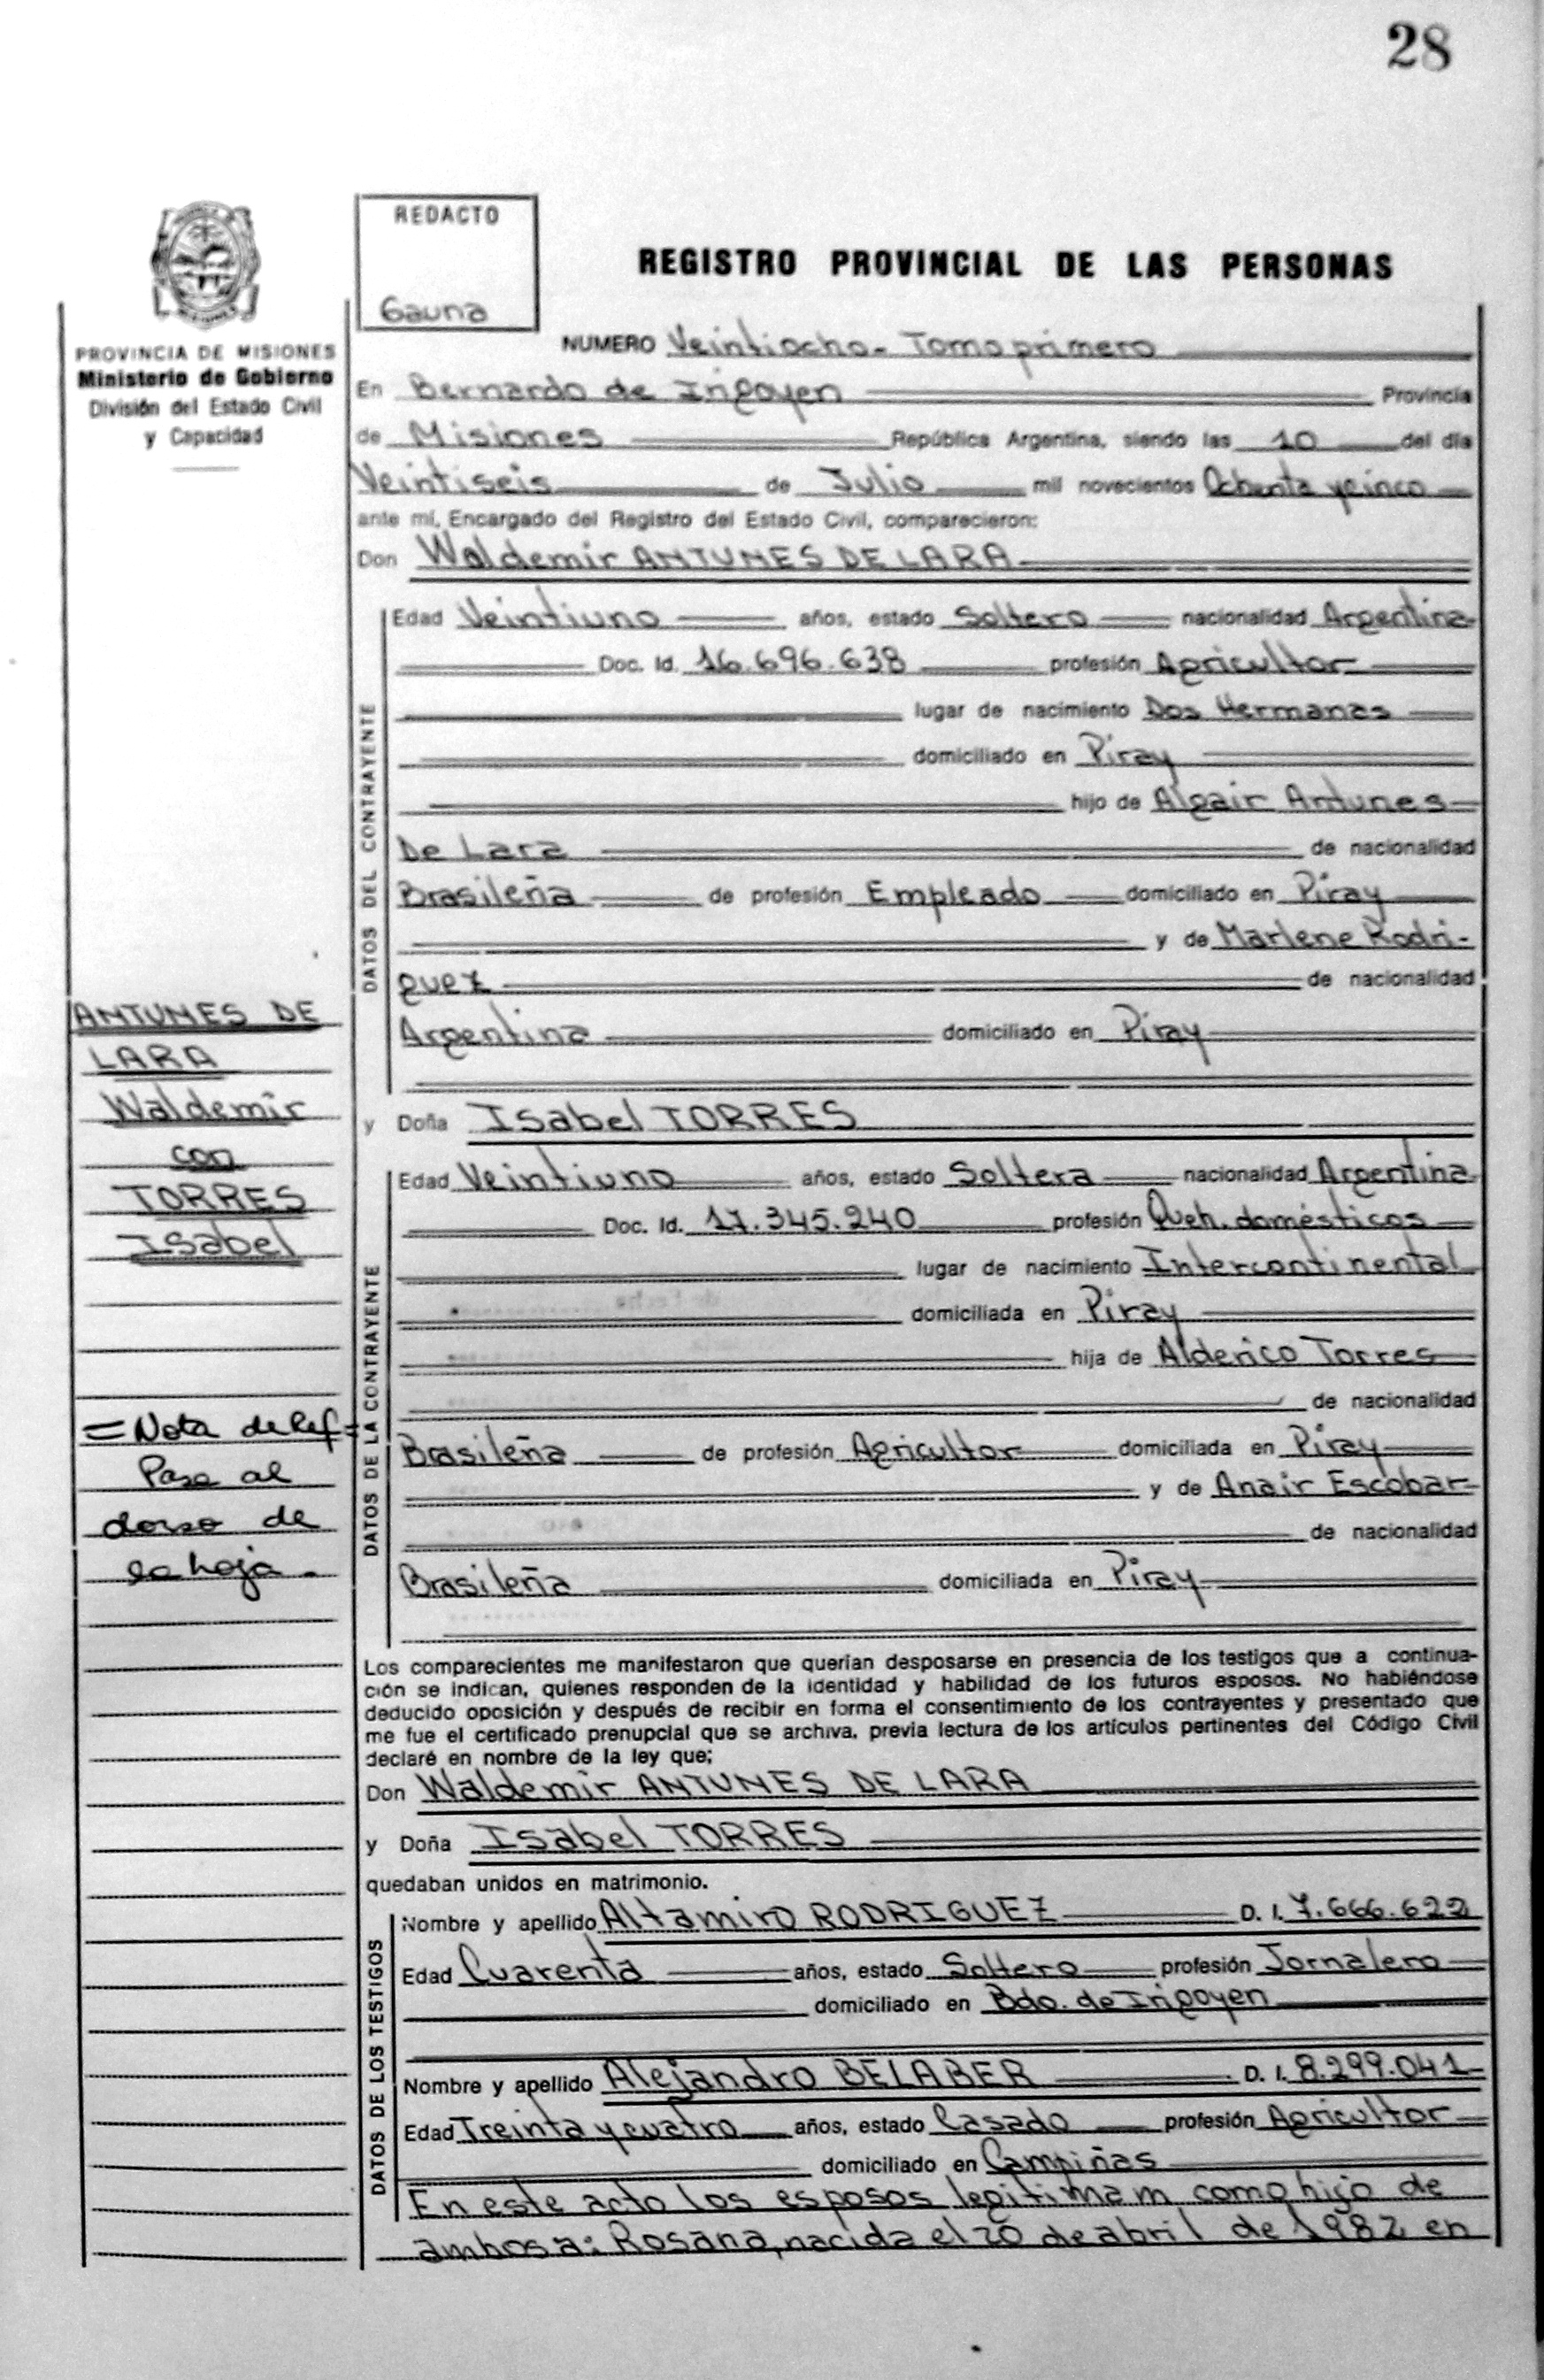 28
REDACTO
Gauna
REGISTRO PROVINCIAL DE LAS PERSONAS
PROVINCIA DE MISIONES
Ministerio de Gobierno
División del Estado Civil
y Capacidad
NUMERO Veintiocho - Tomo primero
En Bernardo de Irigoyen Provincia
de Misiones República Argentina, siendo las 10 del día
Veintiseis de Julio mil novecientos Ochenta y cinco
ante mí, Encargado del Registro del Estado Civil, comparecieron:
Don Waldemir ANTUNES DE LARA
DATOS DEL CONTRAYENTE
Edad Veintiuno años, estado Soltero nacionalidad Argentina
Doc. Id. 16.696.638 profesión Agricultor
lugar de nacimiento Dos Hermanas
domiciliado en Piray
hijo de Algair Antunes
De Lara de nacionalidad
Brasileña de profesión Empleado domiciliado en Piray
y de Marlene Rodri-
guez de nacionalidad
Argentina domiciliado en Piray
ANTUNES DE
LARA
Waldemir
con
TORRES
Isabel
y Doña Isabel TORRES
DATOS DE LA CONTRAYENTE
Edad Veintiuno años, estado Soltera nacionalidad Argentina
Doc. Id. 17.345.240 profesión Queh. domésticos
lugar de nacimiento Intercontinental
domiciliada en Piray
hija de Alderico Torres
de nacionalidad
Brasileña de profesión Agricultor domiciliada en Piray
y de Anair Escobar
de nacionalidad
Brasileña domiciliada en Piray
= Nota de Ref =
Pasa al
dorso de
la hoja -
Los comparecientes me manifestaron que querían desposarse en presencia de los testigos que a continua-
ción se indican, quienes responden de la identidad y habilidad de los futuros esposos. No habiéndose
deducido oposición y después de recibir en forma el consentimiento de los contrayentes y presentado que
me fue el certificado prenupcial que se archiva, previa lectura de los artículos pertinentes del Código Civil
declaré en nombre de la ley que;
Don Waldemir ANTUNES DE LARA
y Doña Isabel TORRES
quedaban unidos en matrimonio.
DATOS DE LOS TESTIGOS
Nombre y apellido Altamiro RODRIGUEZ D. I. 7.666.622
Edad Cuarenta años, estado Soltero profesión Jornalero
domiciliado en Bdo. de Irigoyen
Nombre y apellido Alejandro BELABER D. I. 8.299.041
Edad Treinta y cuatro años, estado Casado profesión Agricultor
domiciliado en Campiñas
En este acto los esposos legitimam como hijo de
ambos a: Rosana, nacida el 20 de abril de 1982 en